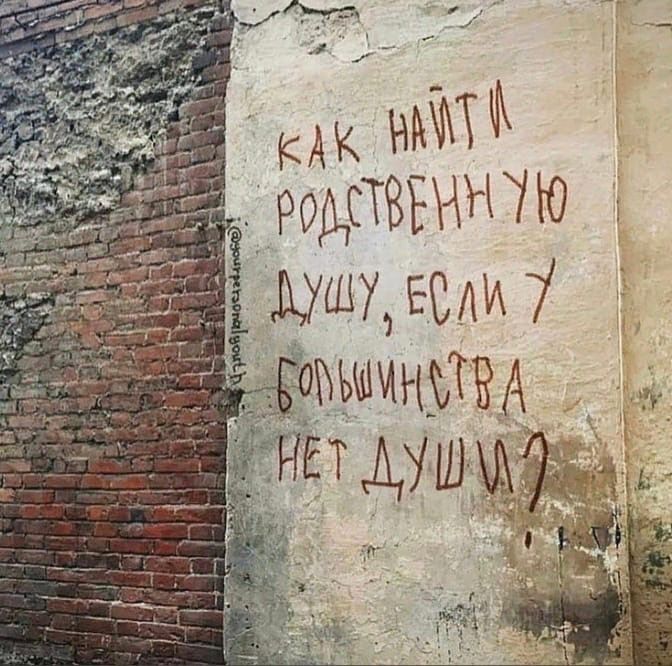 КАК НАЙТИ
РОДСТВЕННУЮ
ДУШУ, ЕСЛИ У
БОЛЬШИНСТВА
НЕТ ДУШИ?
@yourpersonalyouth